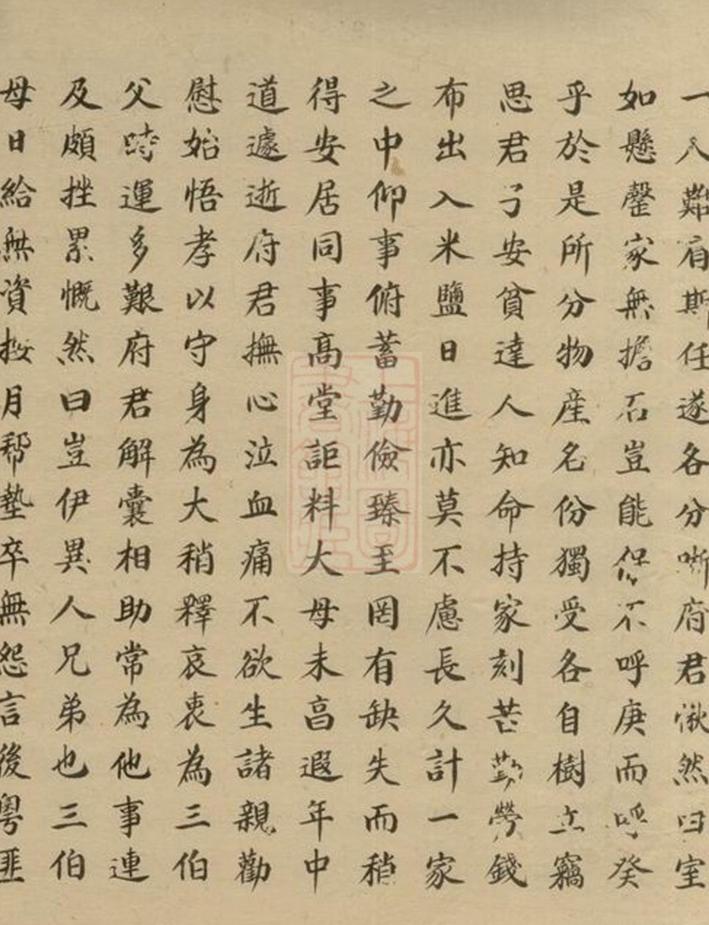 一人難肩斯任遂各分㪚府君愀然曰室
如懸罄家無擔石豈能保不呼庚而呼癸
乎於是所分物產名份獨受各自樹立竊
思君子安貧達人知命持家刻苦勤勞錢
布出入米鹽日進亦莫不慮長久計一家
之中仰事俯蓄勤儉臻至罔有缺失而稍
得安居同事高堂詎料大母未亯遐年中
道遽逝府君撫心泣血痛不欲生諸親勸
慰始悟孝以守身為大稍釋哀衷為三伯
父時運多艱府君解囊相助常為他事連
及頗挫累慨然曰豈伊異人兄弟也三伯
母日給無資按月帮墊卒無怨言後粵匪